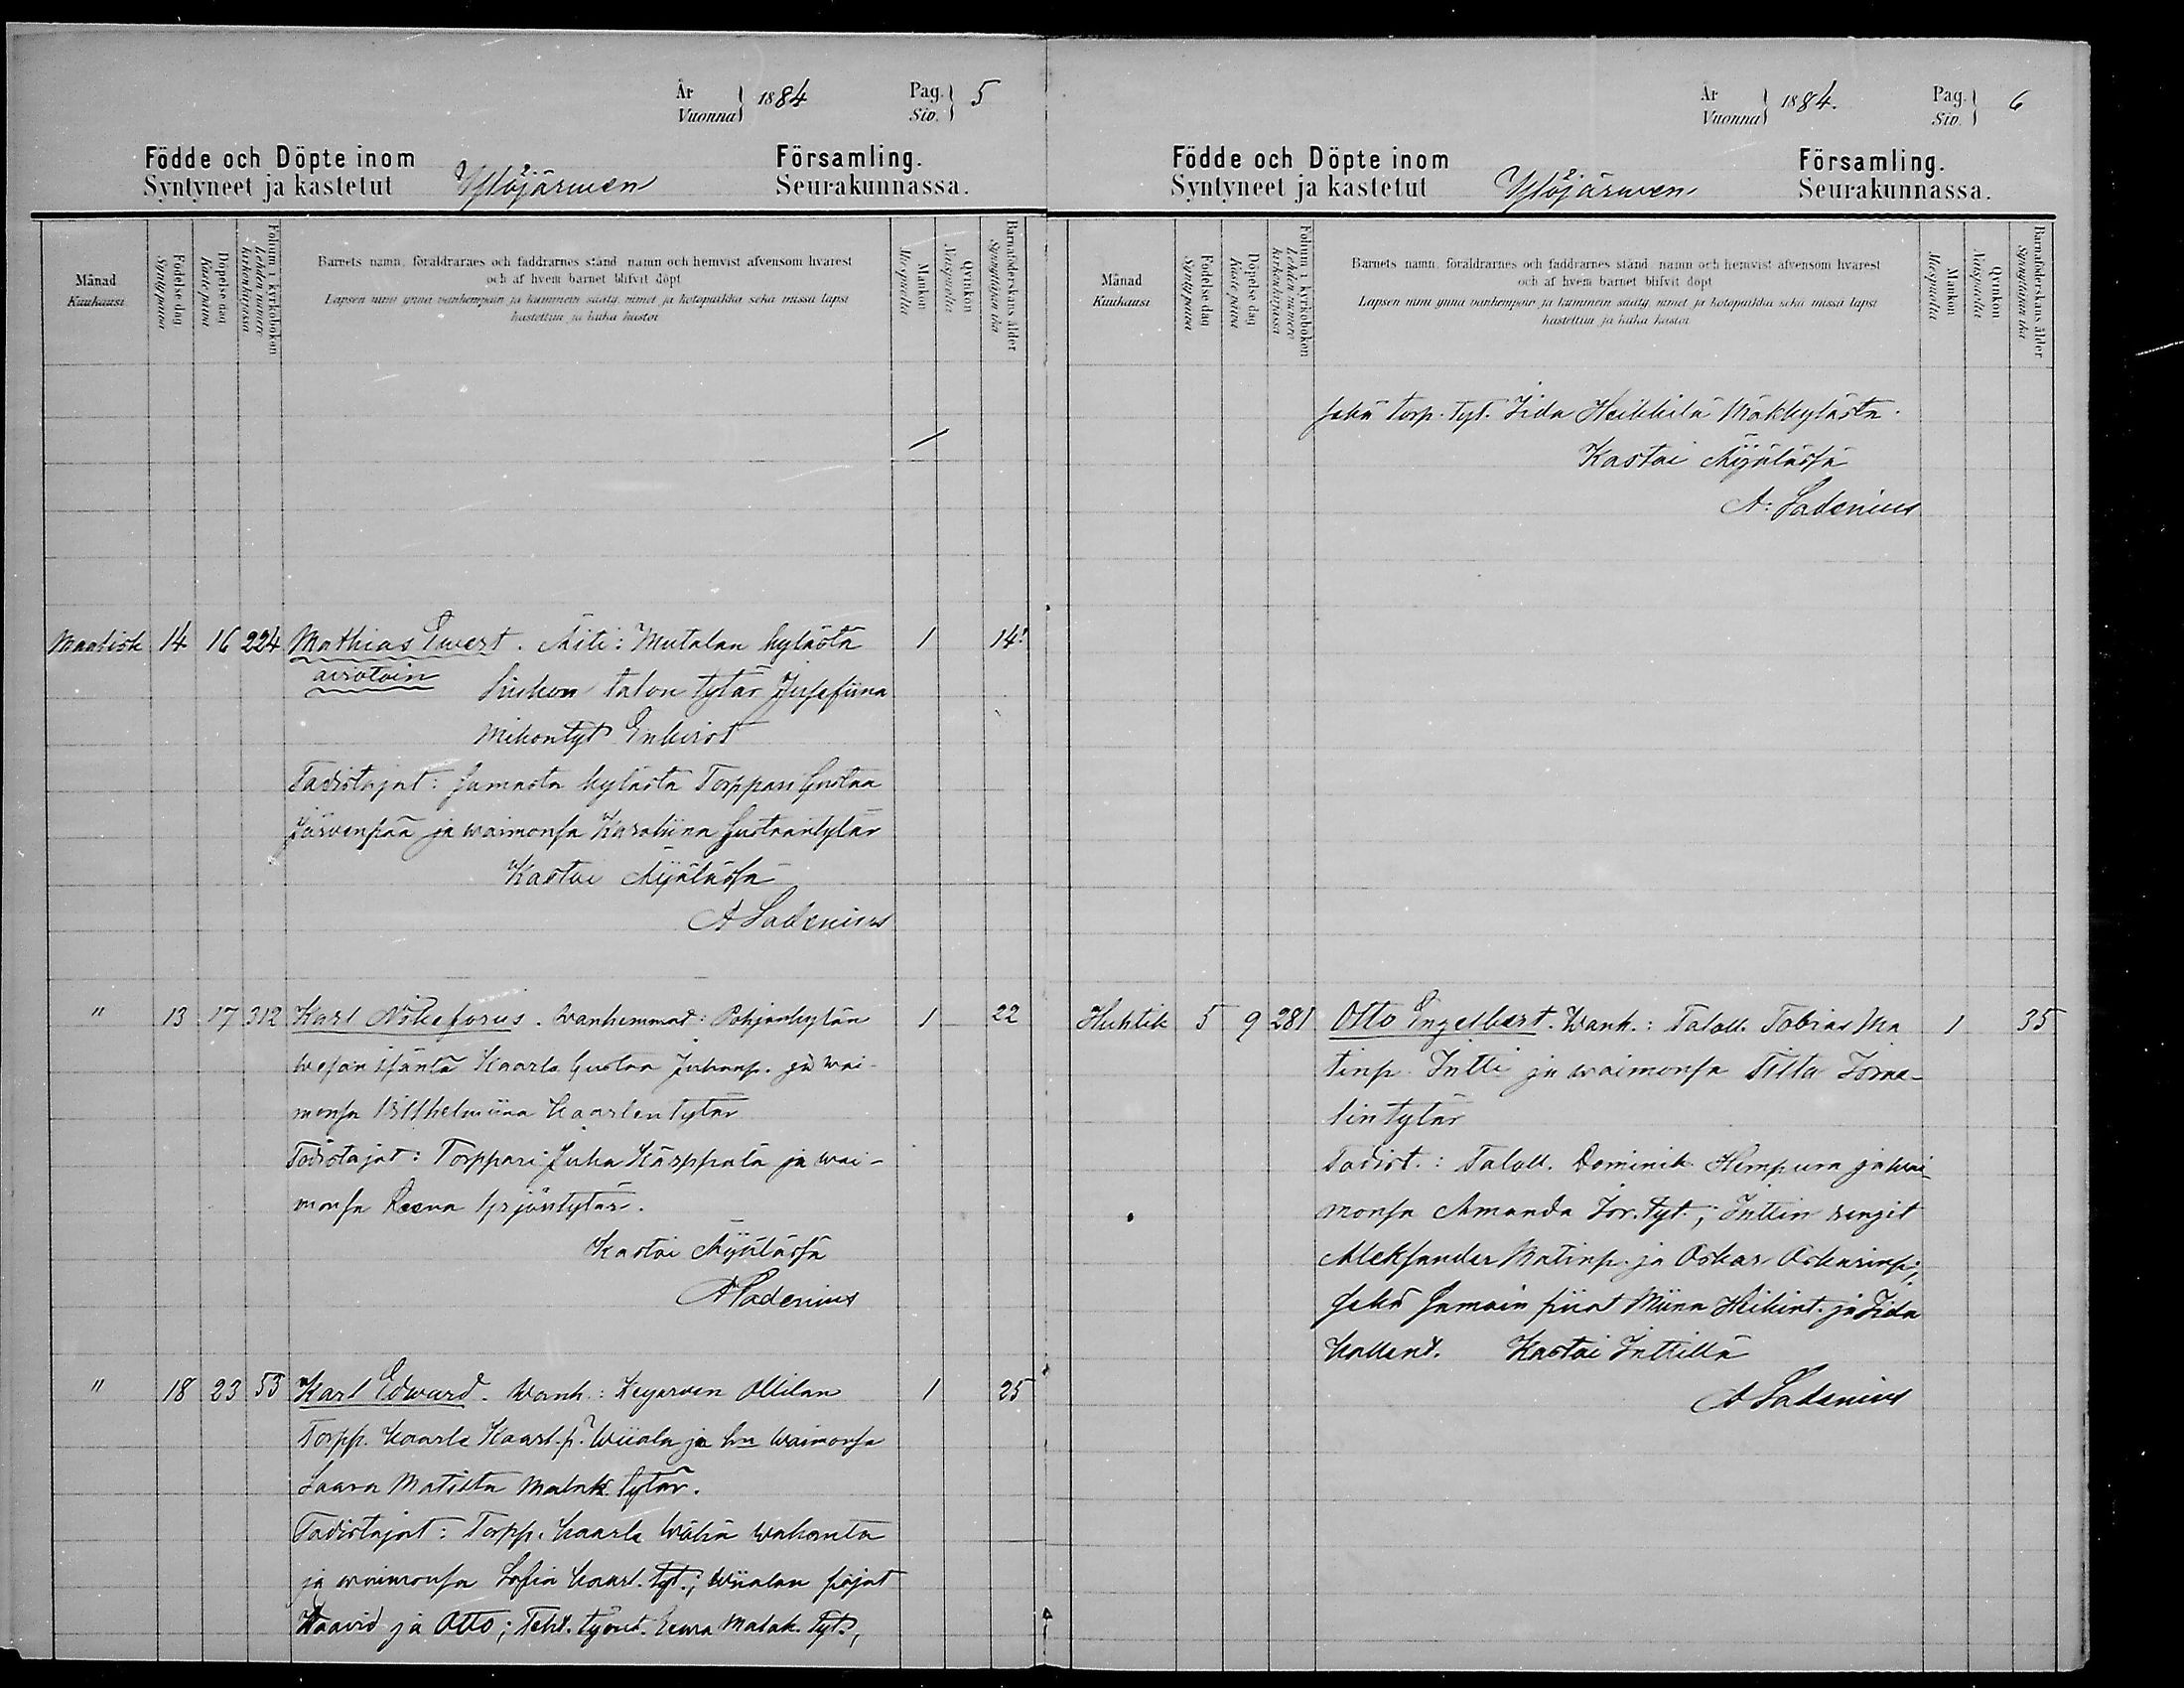 År
Vuonna } 1884
Pag.
Siv. } 5
Födde och Döpte inom
Församling.
Syntyneet ja kastetut Ylöjärwen Seurakunnassa.
Månad
Kuukausi
Födelse dag
Synty päivä
Döpelse dag
Kaste päivä
Folium i kyrkoboken
Lehden numero kirkonkirjassa
Barnets namn, föräldrarnes och faddrarnes stånd namn och hemvist äfvensom hvarest
och af hvem barnet blifvit döpt
Lapsen nimi ynnä vanhempain ja kummein sääty, nimet ja kotopaikka sekä missä lapsi
kastettiin ja kuka kastoi
Mankön
Miespuolia
Qvinkön
Naispuolia
Barnaföderskans ålder
Synnyttäjän ikä
Maalisk 14 16 224 Mathias Ewert. Äiti: Mutalan kylästä 1 14!
aviotoin talon tytär Josefiina
Mikontyt Enkvist
Todistajat: samasta kylästä Torppari Gustaa
Järvenpää ja waimonsa Karoliina Gustaantytär
Kastoi Äijälässä
A Ladenius
" 13 17 312 Karl Nikeforus. Wanhemmat: Pohjankylän 1 22
isäntä Kaarle Gustaa Juhanp. ja wai-
monsa Wilhelmiina Kaarlen tytär
Todistajat: Torppari Juha Kärppälä ja wai-
monsa Leena Yrjöntytär.
Kastoi Äijälässä
A Ladenius
" 18 23 53 Karl Edward. Wanh.: Keijärven Ollilan 1 25
Torpp. Kaarle Kaarl. p. Wiiala ja hn waimonsa
Laura Matilta Malak. tytär.
Todistajat: Torpp. Kaarle Wähä Wahanta
ja waimonsa Sofia Kaarl. tyt.; Wiialan pojat
Taavid ja Otto; Teht. työnt. Eeva Malak. tyt.,
År
Vuonna } 1884.
Pag.
Siv. } 6
Födde och Döpte inom
Församling.
Syntyneet ja kastetut Ylöjärwen Seurakunnassa.
Månad
Kuukausi
Födelse dag
Synty päivä
Döpelse dag
Kaste päivä
Folium i kyrkoboken
Lehden numero kirkonkirjassa
Barnets namn, föräldrarnes och faddrarnes stånd namn och hemvist äfvensom hvarest
och af hvem barnet blifvit döpt
Lapsen nimi ynnä vanhempain ja kummein sääty, nimet ja kotopaikka sekä missä lapsi
kastettiin ja kuka kastoi
Mankön
Miespuolia
Qvinkön
Naispuolia
Barnaföderskans ålder
Synnyttäjän ikä
sekä torp. tyt. Iida Heikkilä Mäkkylästä.
Kastoi Äijälässä
A: Ladenius
Huhtik 5 9 281 Otto Engelbert. Wanh.: Taloll. Tobias Ma 1 35
tinp. Intti ja waimonsa Tilta Isra-
lin tytär
Todist.: Taloll. Dominik Hempura ja wai
monsa Amanda Isr. tyt.; Inttin rengit
Aleksander Matinp. ja Oskar Oskarinp;
sekä samoin piiat Miina Heikint. ja Iida
Kallent. Kastoi Inttillä
A Ladenius